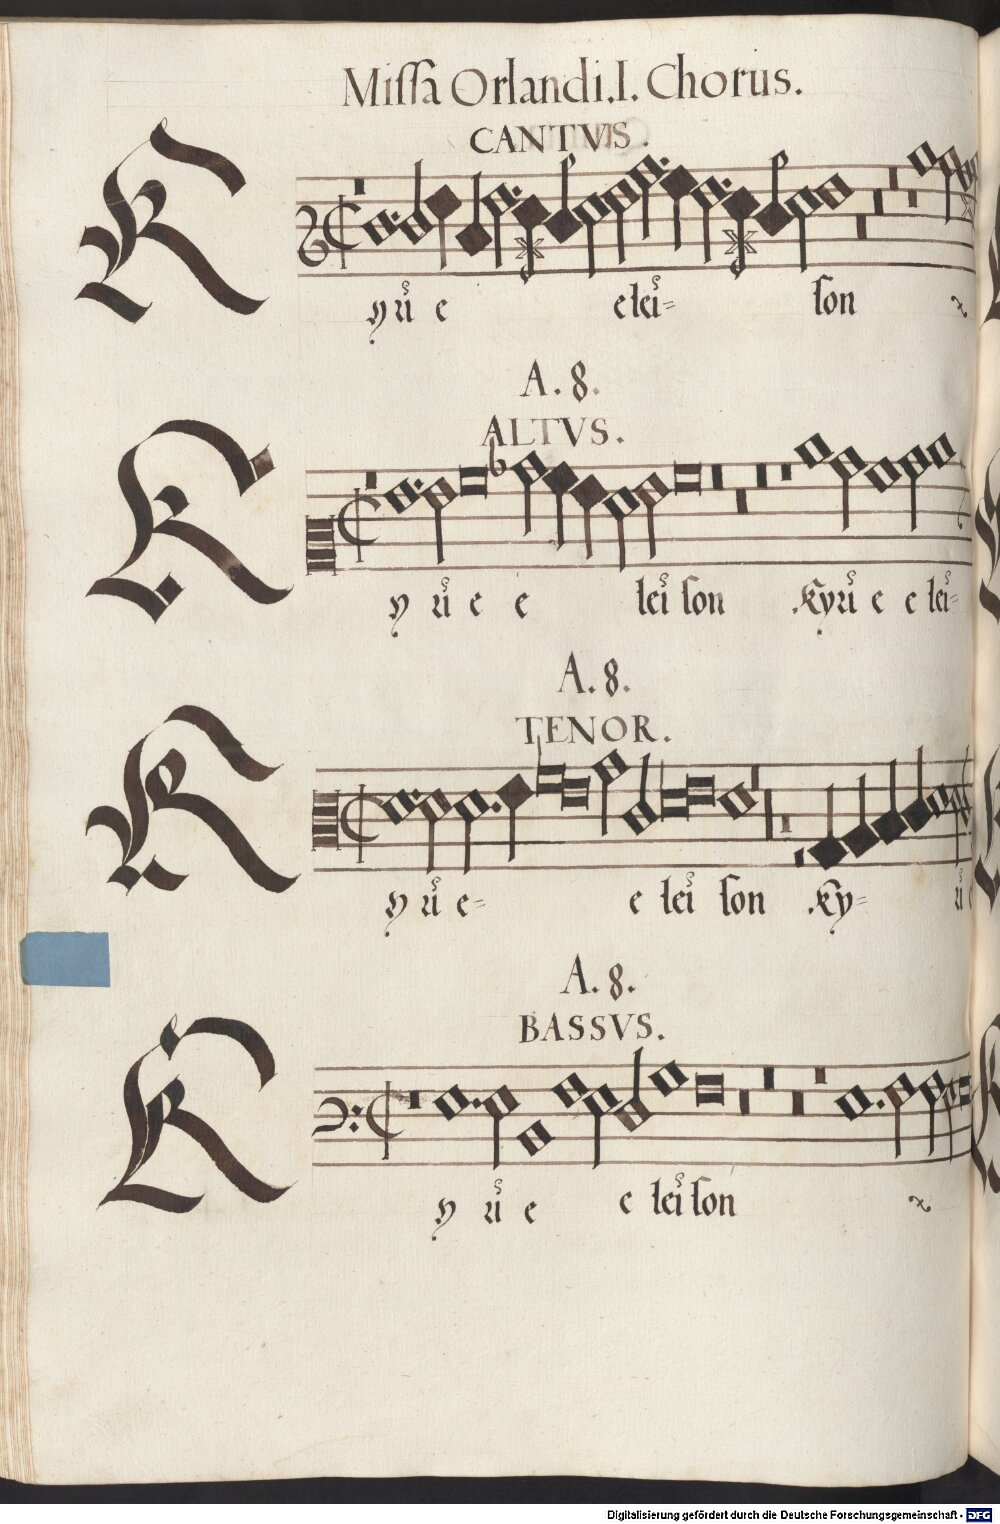 Missa Orlandi. I. Chorus.
CANTVS.
K
yri e elei= son
A. 8.
ALTVS.
K
y ri e e lei son Kyri e e lei=
A. 8.
TENOR.
K
y ri e= e lei son Ky= ri e
A. 8.
BASSVS.
K
y ri e e lei son
Digitalisierung gefördert durch die Deutsche Forschungsgemeinschaft - DFG